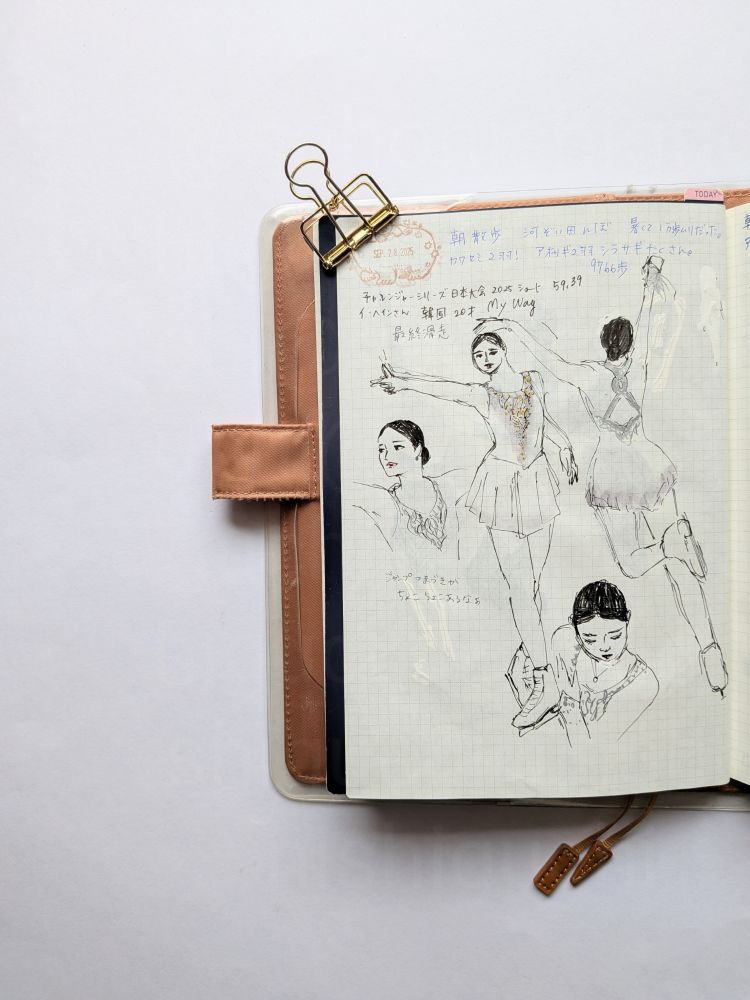 TODAY
SEP. 28. 2025
朝散歩 河ぞい田んぼ 暑くて1歩のりだった。
カワセミ2羽! アオサギ2羽 シラサギたくさん。
9766歩
チャレンジャーシリーズ日本大会 2025 ショート 59.39
イ・ヘインさん 韓国 20才 My Way
最終滑走
ジャンプつまづきが
ちょこちょこあるなぁ